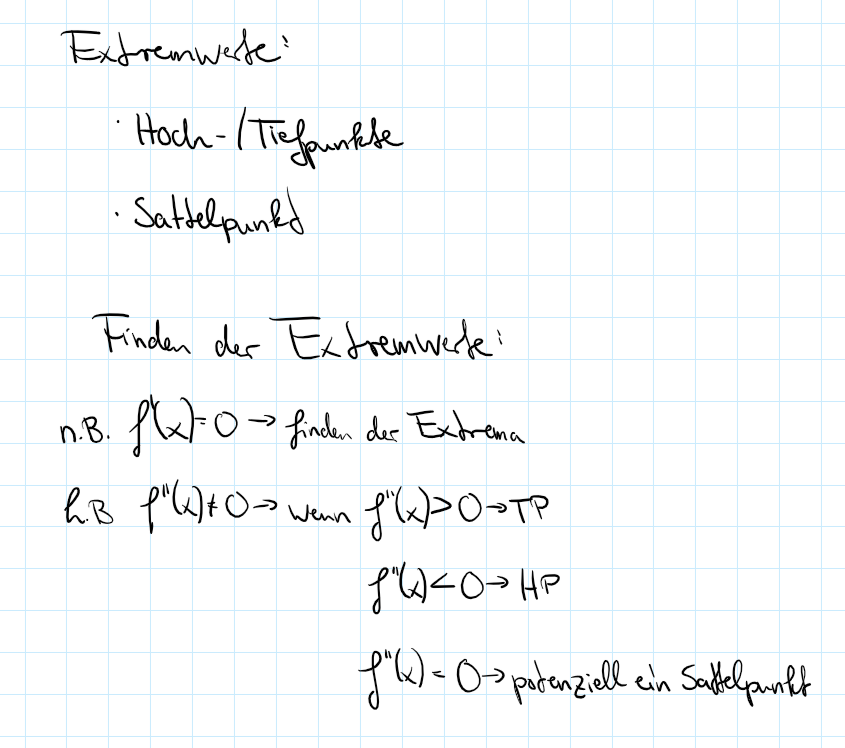 Extremwerte:
· Hoch-/Tiefpunkte
· Sattelpunkt
Finden der Extremwerte:
n.B. f'(x)=0 → finden der Extrema
h.B f''(x)≠0 → wenn f''(x)>0 → TP
f''(x)<0 → HP
f''(x)=0 → potenziell ein Sattelpunkt